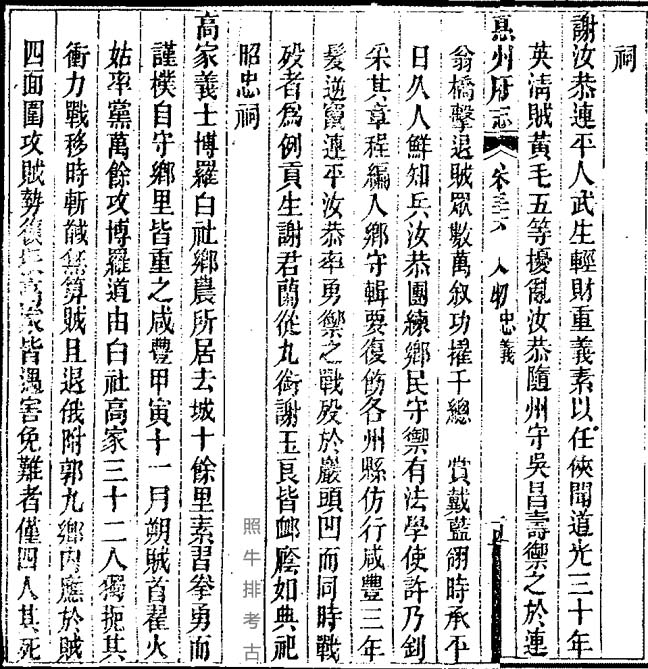 祠
謝汝恭連平人武生輕財重義素以任俠聞道光三十年
英淸賊黃毛五等擾亂汝恭隨州守吳昌壽禦之於連
惠州府志 卷三十六 人物 忠義
翁橋擊退賊眾數萬叙功擢千總 賞戴藍翎時承平
日久人鮮知兵汝恭團練鄉民守禦有法學使許乃釗
采其章程編入鄉守輯要復飭各州縣仿行咸豐三年
髮逆竄連平汝恭率勇禦之戰歿於巖頭凹而同時戰
歿者爲例貢生謝君蘭從九銜謝玉良皆卹廕如典祀
昭忠祠
高家義士博羅白社鄉農所居去城十餘里素習拳勇而
謹樸自守鄉里皆重之咸豐甲寅十一月朔賊首翟火
姑率黨萬餘攻博羅道由白社高家三十二人獨扼其
衝力戰移時斬馘無算賊且退俄附郭九鄉內應於賊
四面圍攻賊勢復振高家皆遇害免難者僅四人其死
照牛排考古